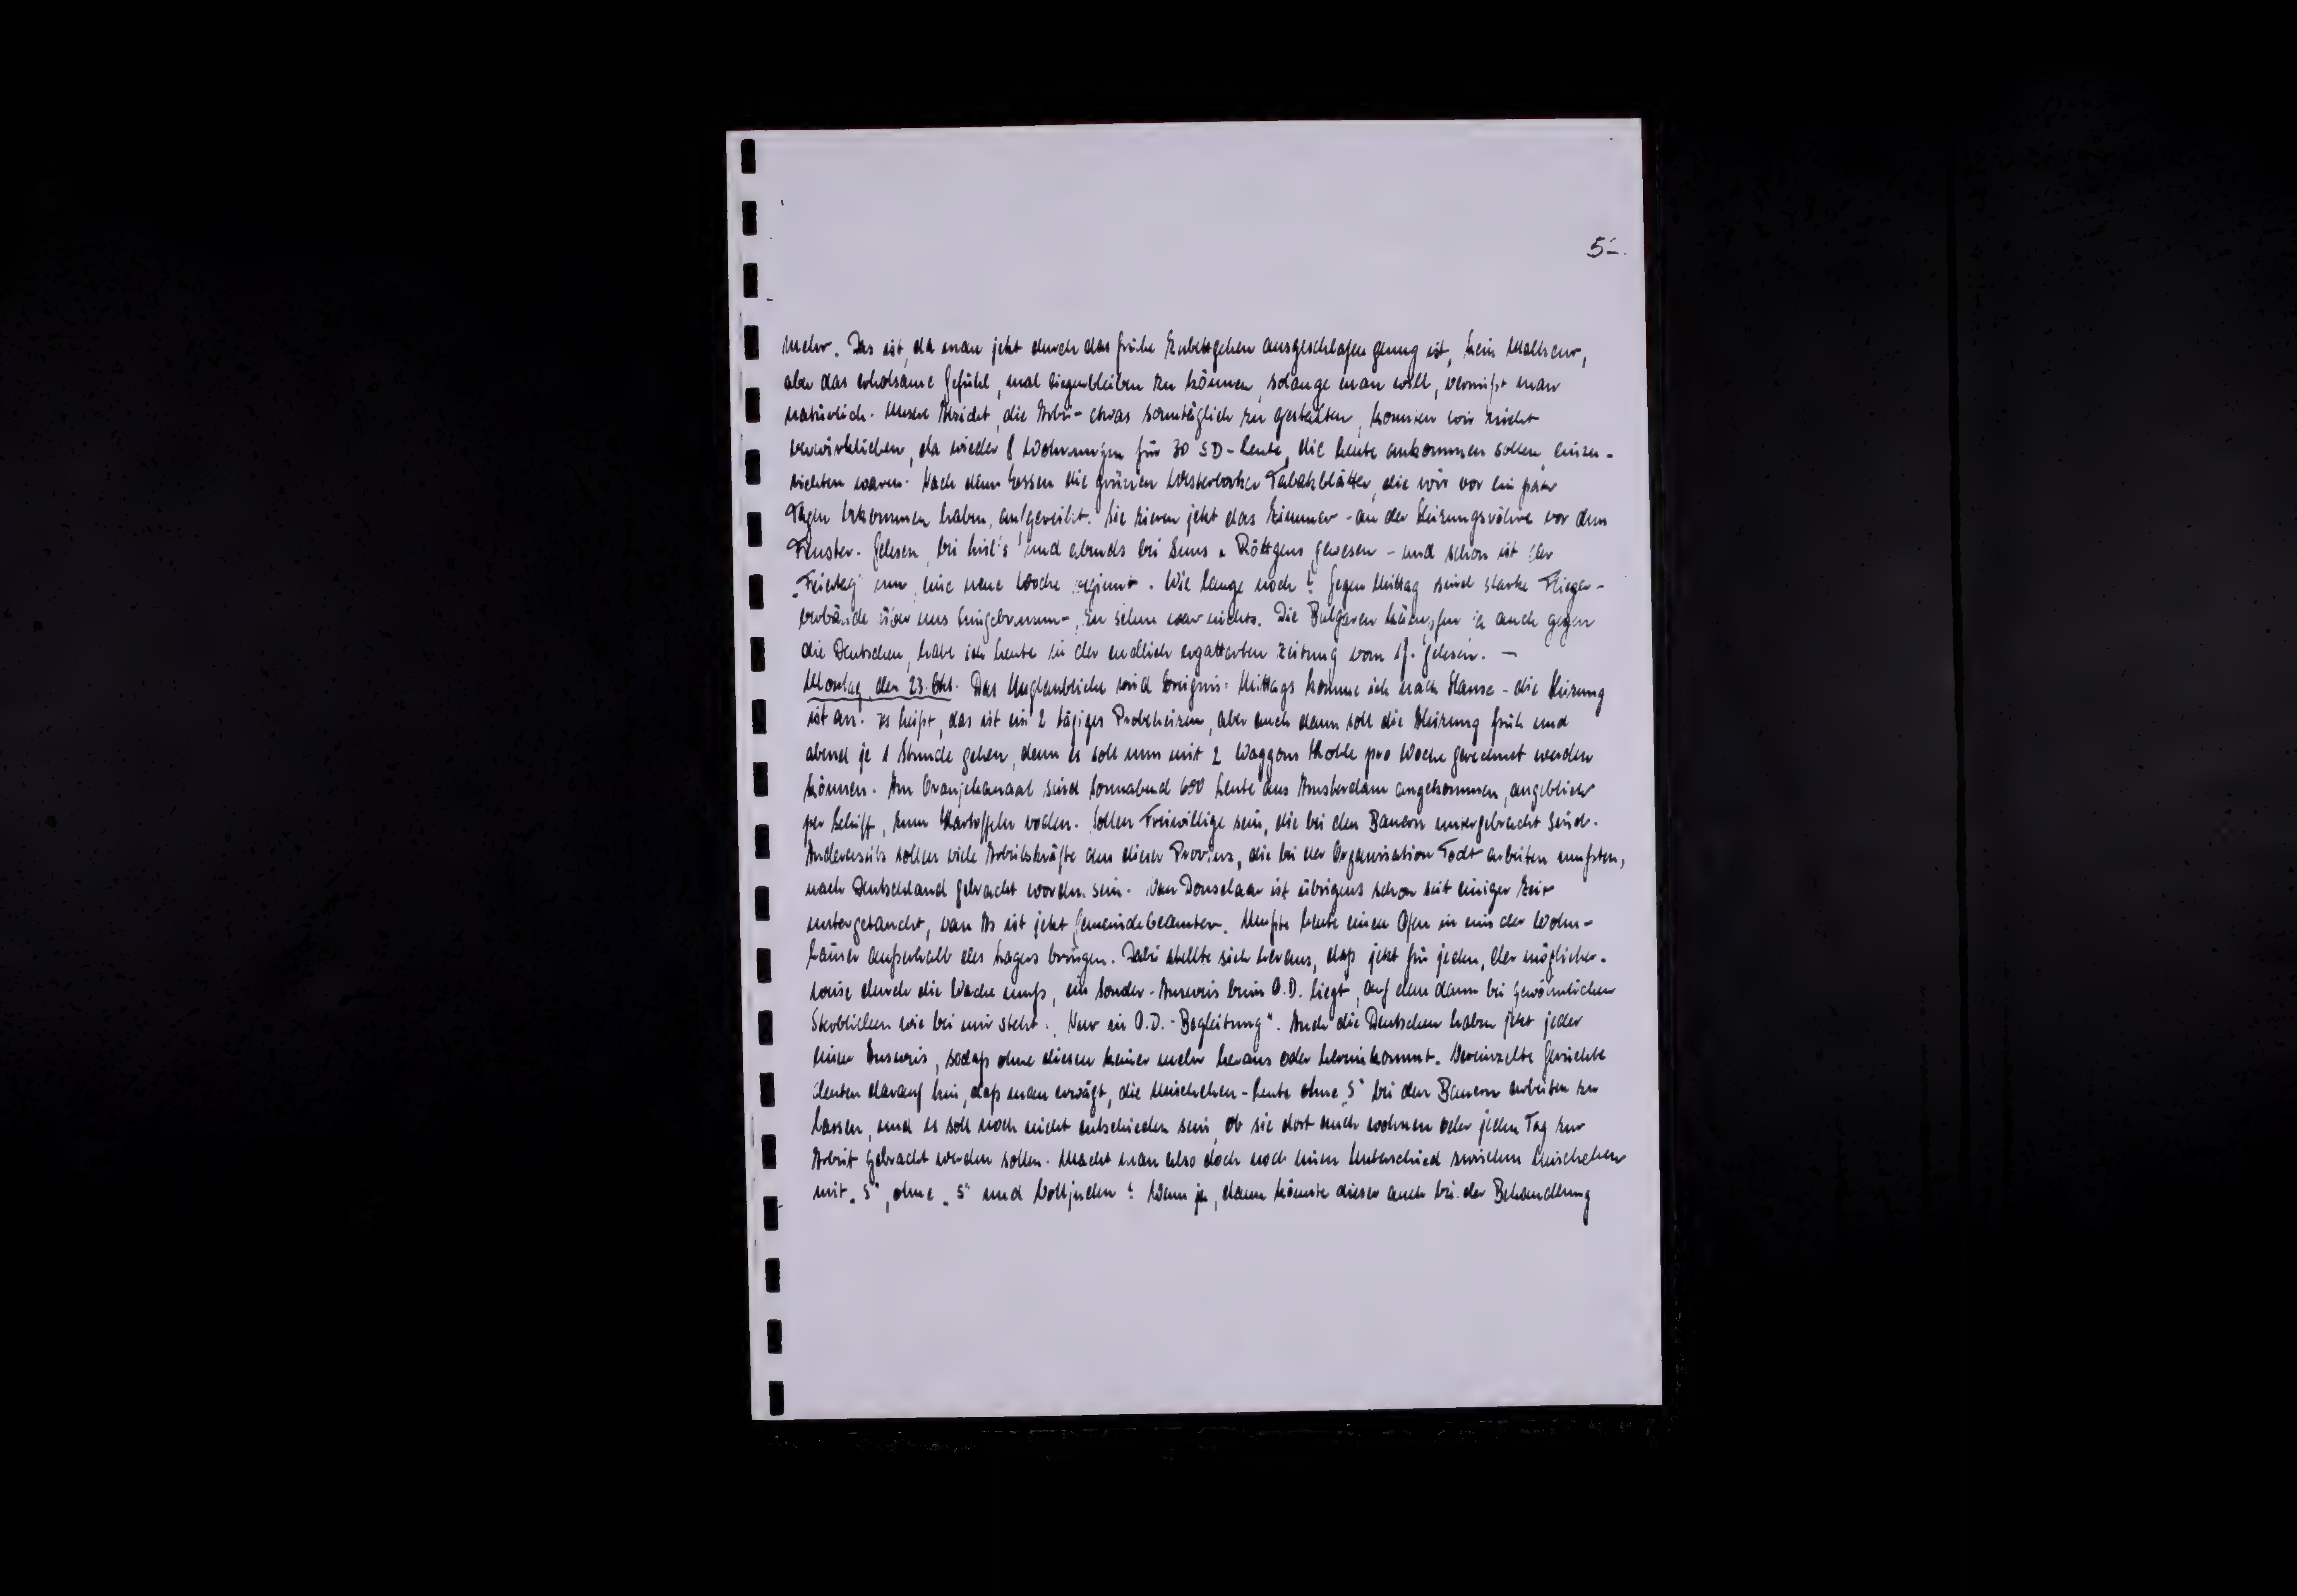 5-.
mehr. Das ist, da man jetzt durch das frühe Zubettgehen ausgeschlafen genug ist, kein Malheur,
aber das erholsame Gefühl, mal liegenbleiben zu können, solange man will, vermißt man
natürlich. Unsere Absicht, die Arbeit etwas sonntäglich zu gestalten, konnten wir nicht
verwirklichen, da wieder 8 Wohnungen für 30 SD-Leute, die heute ankommen sollen, einzu-
richten waren. Nach dem Essen die grünen Westerborker Tabakblätter, die wir vor ein paar
Tagen bekommen haben, aufgereiht. Sie zieren jetzt das Zimmer - an der Heizungsröhre vor dem
Fenster. Gelesen, bei und abends bei Röttgens gewesen - und schon ist der
"Feiertag" um, eine neue Woche beginnt. Wie lange noch? Gegen Mittag sind starke Flieger-
verbände über uns hingebrummt, zu sehen war nichts. Die Bulgaren kämpfen ja auch gegen
die Deutschen, habe ich heute in der endlich ergatterten Zeitung vom 17. gelesen. -
Montag, den 23. Okt. Das Unglaubliche wird Ereignis: Mittags komme ich nach Hause - die Heizung
ist an. Es heißt, das ist ein 2 tägiges Probeheizen, aber auch dann soll die Heizung früh und
abend je 1 Stunde gehen, denn es soll nun mit 2 Waggons Kohle pro Woche gerechnet werden
können. Am Oranjekanaal sind Sonnabend 600 Leute aus Amsterdam angekommen, angeblich
per Schiff, zum Kartoffeln roden. Sollen Freiwillige sein, die bei den Bauern untergebracht sind.
Andererseits sollen viele Arbeitskräfte aus dieser Provinz, die bei der Organisation Todt arbeiten mußten,
nach Deutschland gebracht worden sein. Van Donselaar ist übrigens schon seit einiger Zeit
untergetaucht, van As ist jetzt Gemeindebeamter. Mußte heute einen Ofen in eins der Wohn-
häuser außerhalb des Lagers bringen. Dabei stellte sich heraus, daß jetzt für jeden, der möglicher-
weise durch die Wache muß, ein Sonder-Ausweis beim O.D. liegt, auf dem dann bei gewöhnlichen
Sterblichen wie bei mir steht: "Nur in O.D.-Begleitung". Auch die Deutschen haben jetzt jeder
einen Ausweis, sodaß ohne diesen keiner mehr heraus oder hereinkommt. Vereinzelte Gerüchte
deuten darauf hin, daß man erwägt, die Mischehen-Leute ohne "S" bei den Bauern arbeiten zu
lassen, und es soll noch nicht entschieden sein, ob sie dort auch wohnen oder jeden Tag zur
Arbeit gebracht werden sollen. Macht man also doch noch einen Unterschied zwischen Mischehen
mit "S", ohne "S" und Volljuden? Wenn ja, dann könnte dieser auch bei der Behandlung